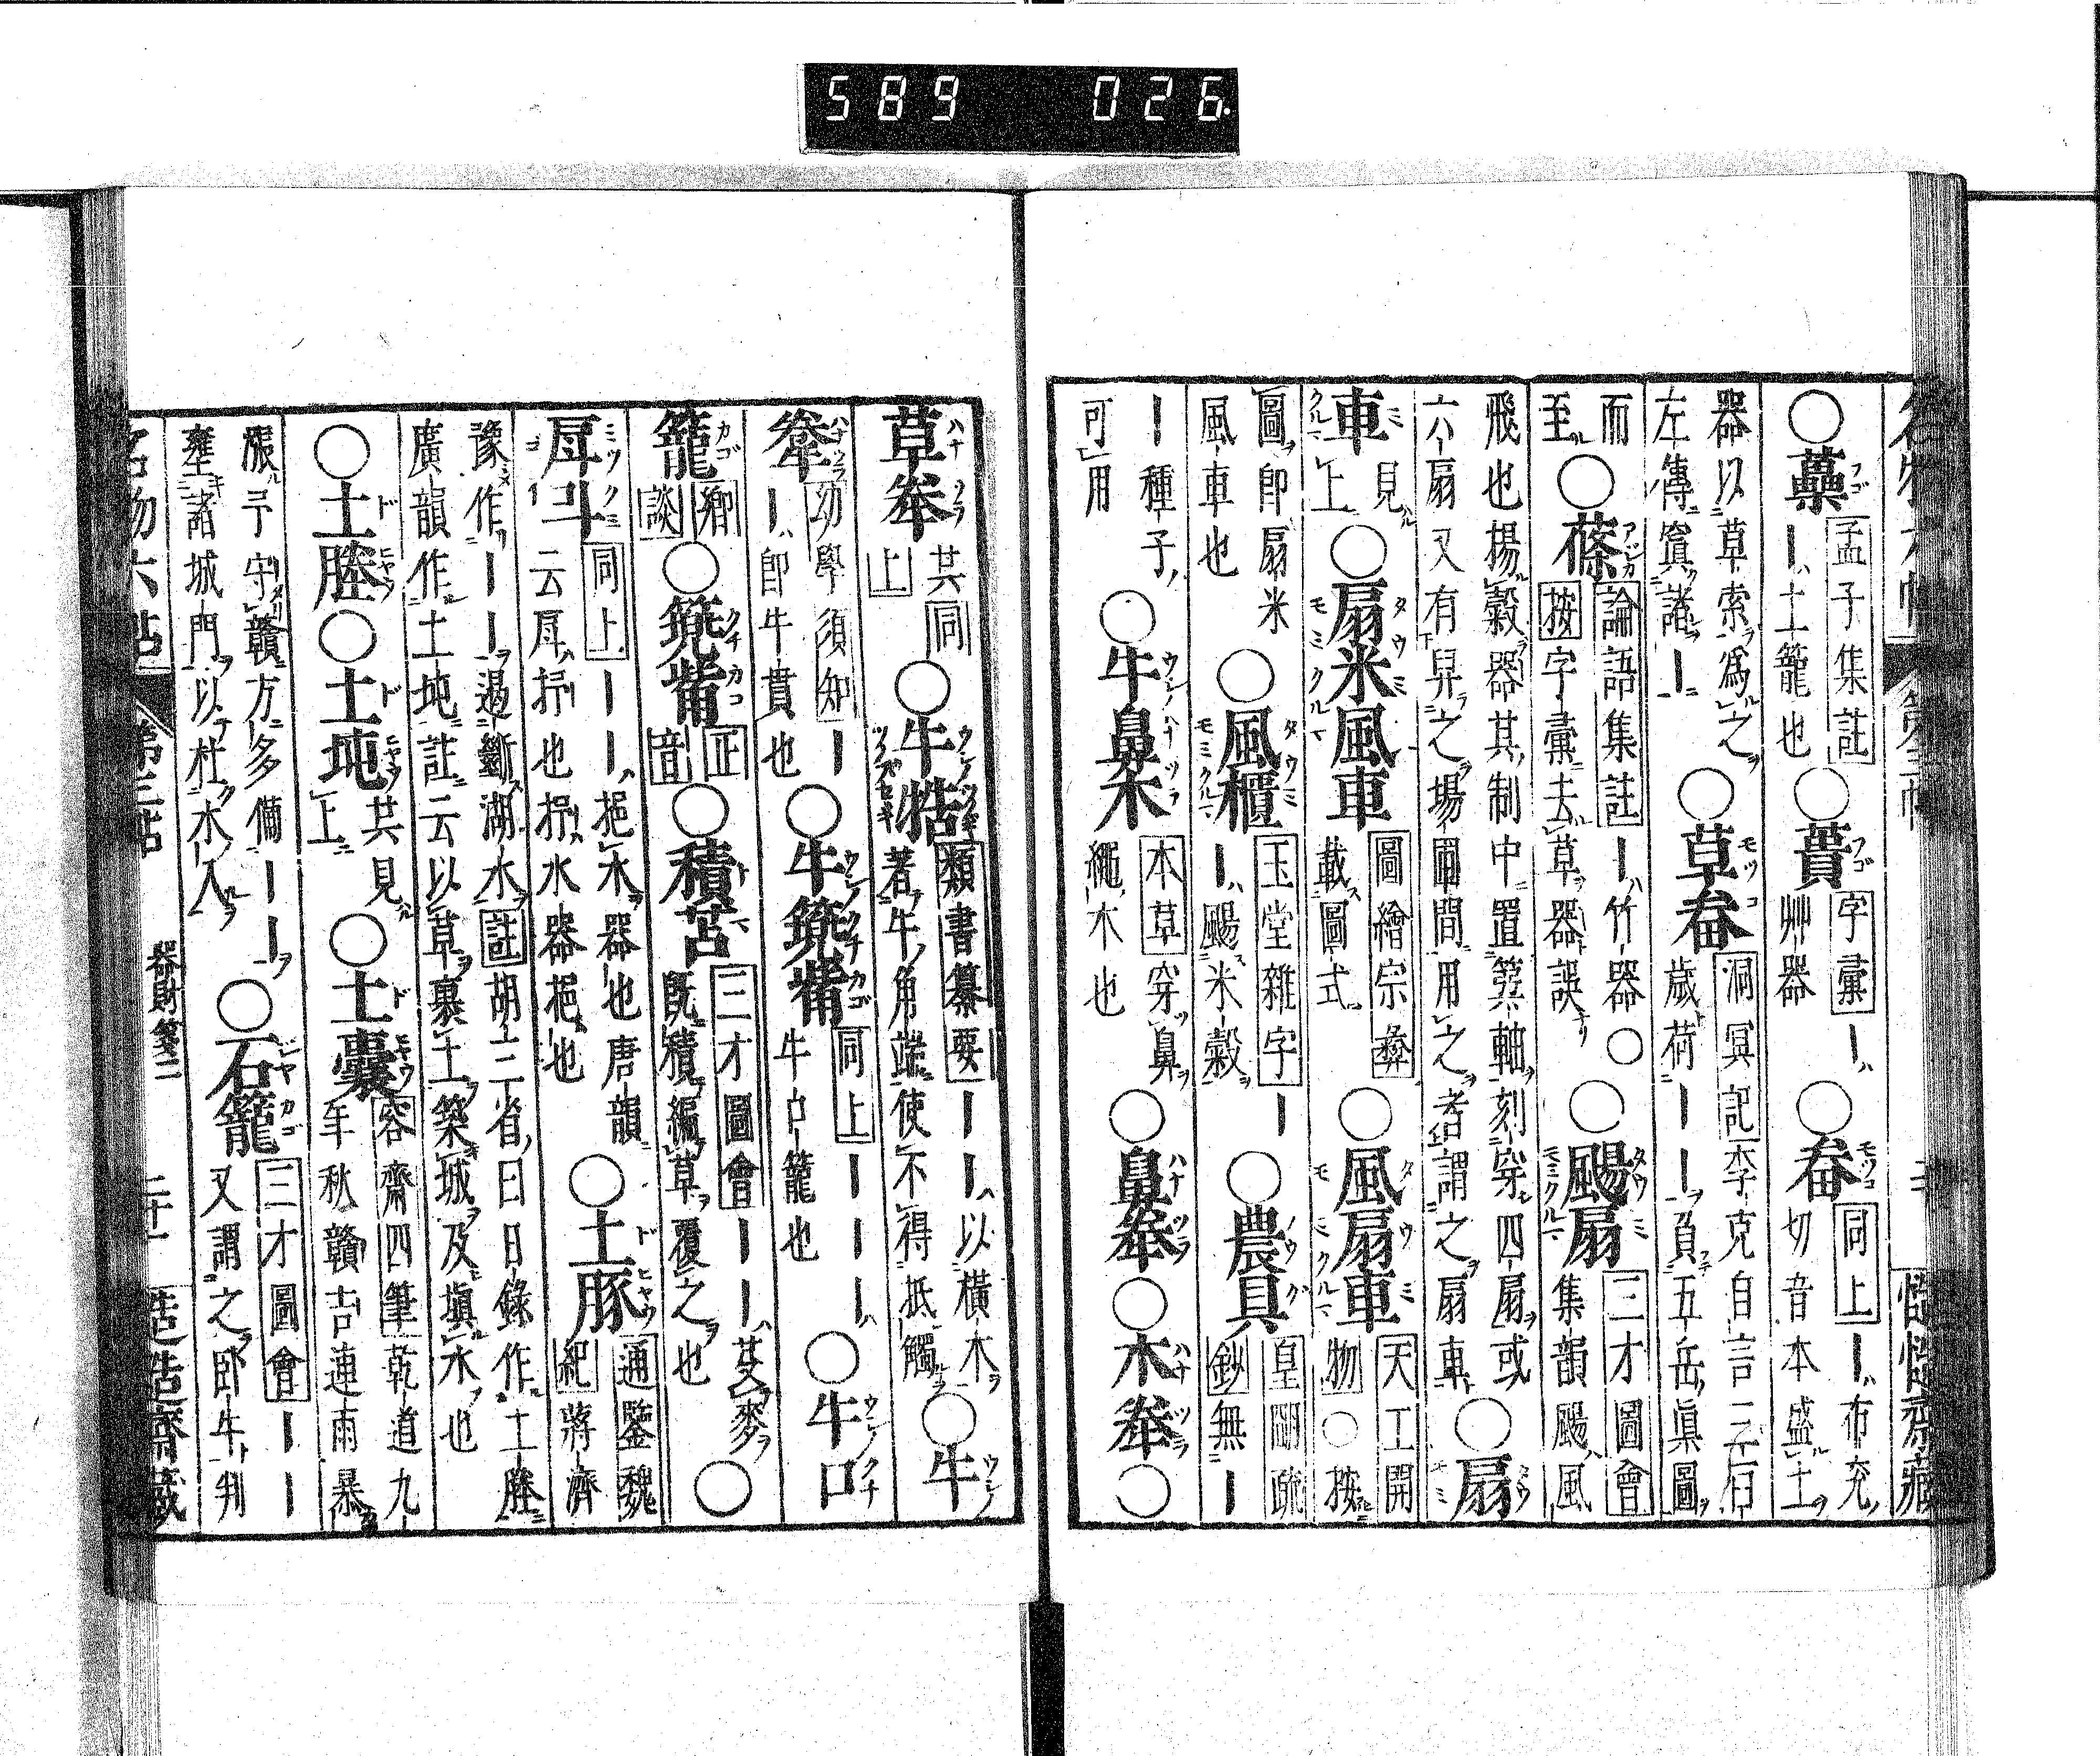 589 026
○虆 孟子集註 ー土籠也 ○蕢 字彙 ー艸器 ○畚 同上 ー布充切音本盛土
器以草索爲之 左傳寘諸ー ○草畚 洞冥記 李克自言三百歲荷ーー負五岳眞圖
而至 ○蓧 論語集註 ー竹器○按字彙去草器誤 ○颺扇 三才圖會 集韻颺風
飛也揚穀器其制中置簨軸刻穿四扇或六扇又有舁之場圃間用之者謂之扇車 ○扇
車 見上 ○扇米風車 圖繪宗彝 載圖式 ○風扇車 天工開物 ○按
圖卽扇米風車也 ○風櫃 玉堂雜字 ー颺米穀ー ○農具 皇明疏鈔 無ー
ー種子可用 ○牛鼻木 本草 穿鼻繩木也 ○鼻桊 ○木桊 ○
草桊 共同上 ○牛牿 類書纂要 ーー以橫木著牛角端使不得抵觸 ○牛
桊 幼學須知 ーー卽牛貫也 ○牛箢觜 同上 ーーー牛口籠也 ○牛口
籠 鄕談 ○箢觜 正音 ○積苫 三才圖會 ーー芟麥旣積編草覆之也 ○
戽斗 同上 ーー挹水器也唐韻云戽抒也抒水器挹也 ○土豚 通鑑魏紀 蔣濟
豫作ーー遏斷湖水註胡三省曰日錄作土塍廣韻作土坉註云以草裹土築城及塡水也
○土塍 ○土坉 共見上 ○土囊 容齋四筆 乾道九年秋贛吉連雨暴
漲予守贛方多備ーー壅諸城門以杜水入 ○石籠 三才圖會 ーー又謂之臥牛判
名物六帖 第三帖 器財箋二 二十一